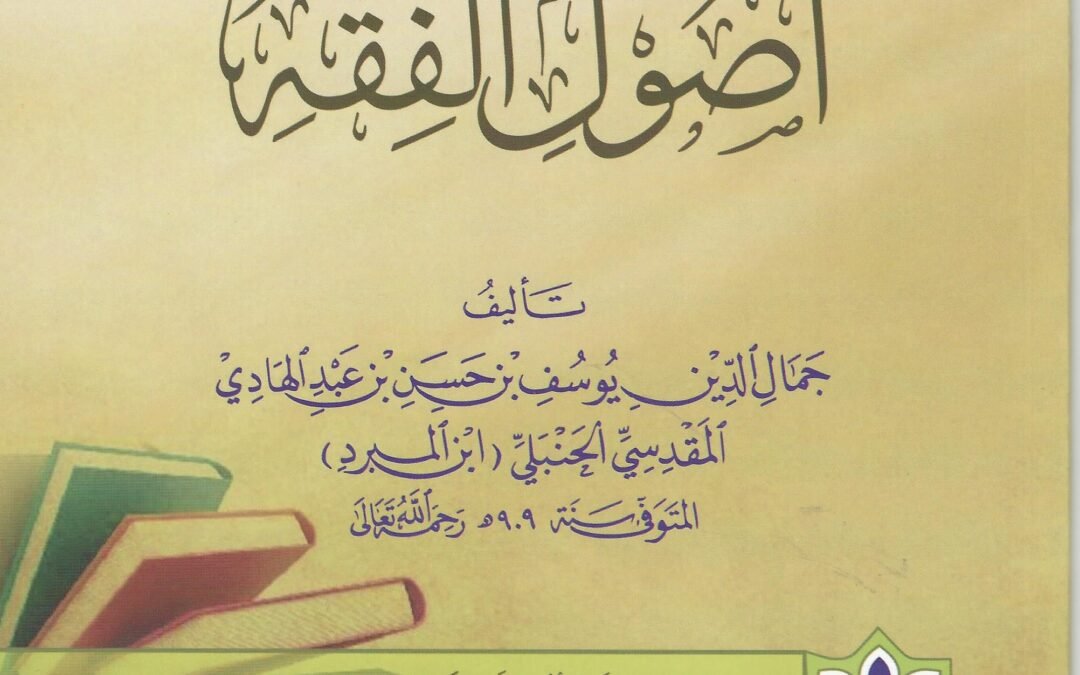 أُصُولِ الفِقْهِ
تَأليفُ
جَمَالِ الدِّيْنِ يُوسُفِ بْنِ حَسَنِ بْنِ عَبْدِ الهَادِيْ
المَقْدِسِيِّ الحَنْبَلِيِّ (ابْنِ المبردِ)
المتَوَفَّىٰ سَنَة ٩٠٩هـ رَحِمَهُ اللَّهُ تَعَالَىٰ